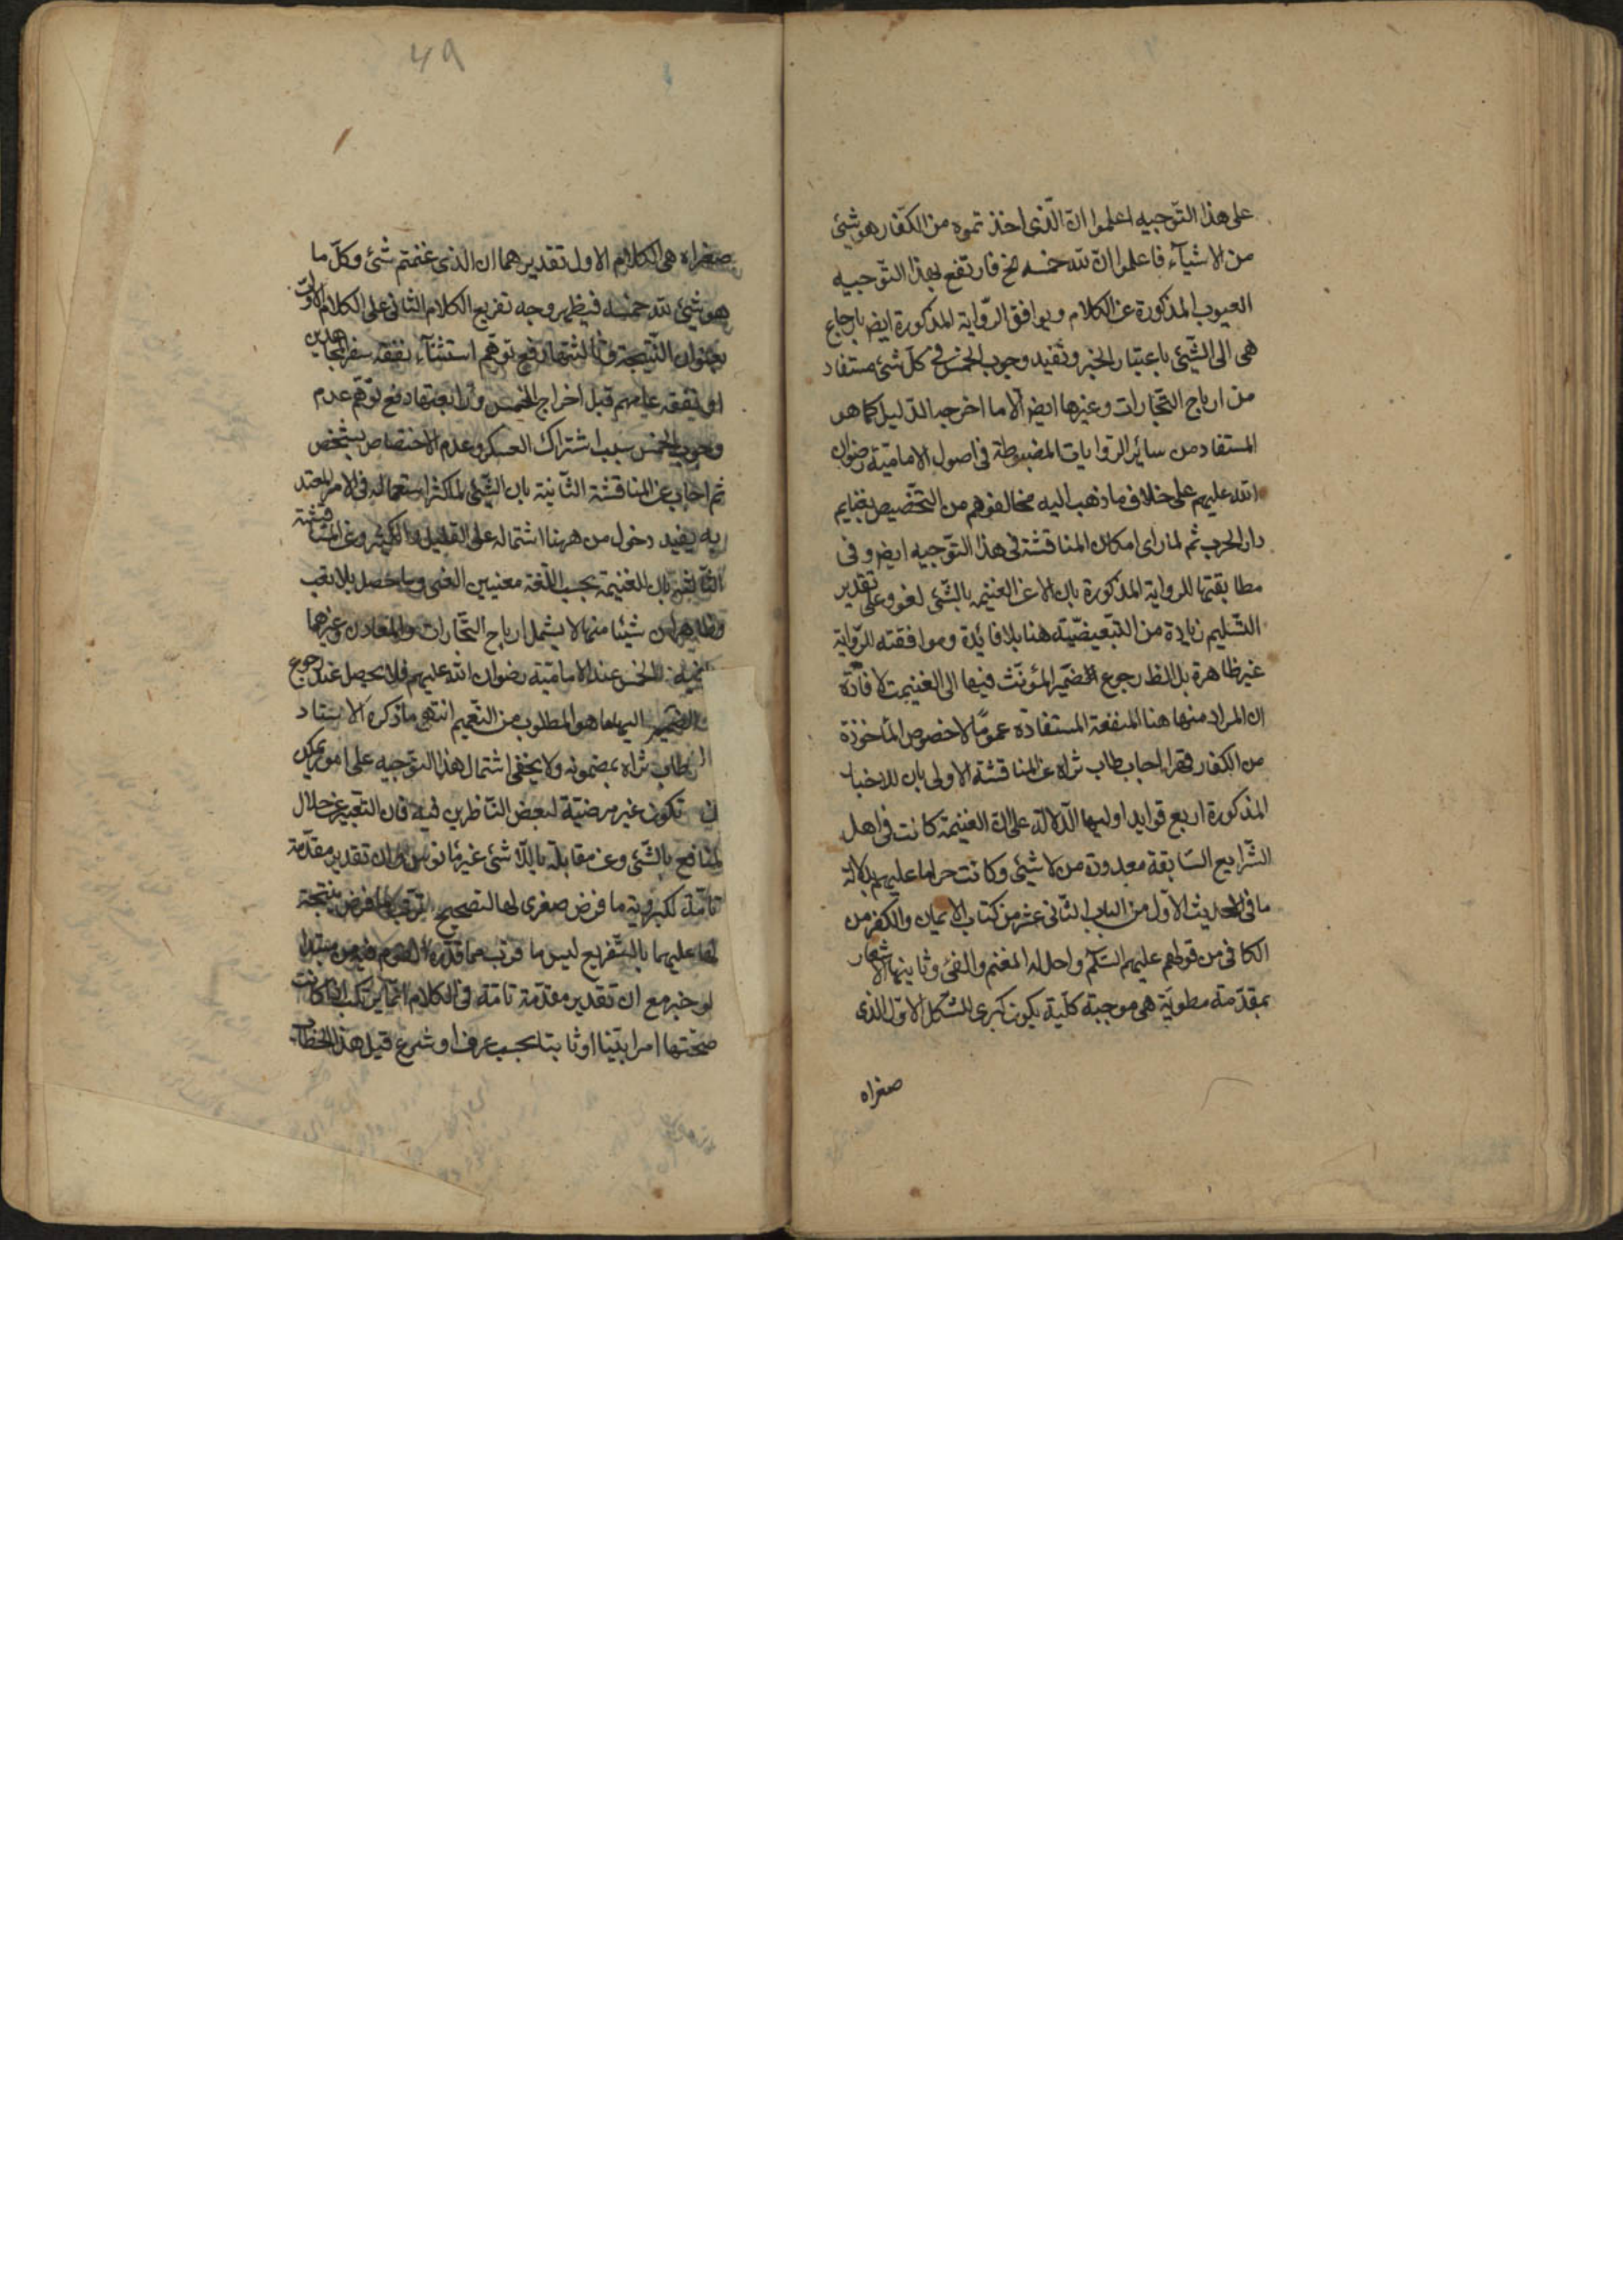 على هذا التوجيه اعلموا ان الّذى اخذتموه من الكفّار هو شئ
من الاشيآء فاعلموا انّ لله خمسه الخ فارتفع بهذا التّوجيه
العيوب المذكورة عن الكلام ويوافق الرّواية المذكورة ايضا بارجاع
هى الى الشّيئ باعتبار الخبر وتفيد وجوب الخمس فى كلّ شئ مستفاد
من ارباح التّجارات وغيرها ايضا الّا ما اخرجه الدّليل كما هو
المستفاد من سائر الرّوايات المضبوطة فى اصول الاماميّة رضوان
الله عليهم على خلاف ما ذهب اليه مخالفوهم من التّخصيص بغنايم
دار الحرب ثم لما راى امكان المناقشة فى هذا التّوجيه ايضا وفى
مطابقتها للرواية المذكورة بان الاعن الغنيمة بالشّئ لغو وعلى تقدير
التّسليم زيادة من التّبعيضيّة هنا بلا فائدة وموافقته الرّواية
غير ظاهرة بل الظ رجوع الضّمير المؤنّث فيها الى الغنيمة لافادة
ان المراد منها هنا المنفعة المستفادة عموما لا خصوص المأخوذة
من الكفار قهرا اجاب طاب ثراه عن المناقشة الاولى بان للاخبار
المذكورة اربع فوايد اوليها الدّلالة على انّ الغنيمة كانت فى اهل
الشّرايع السّابقة معدودة من لا شيئ وكانت حراما عليهم بدلالة
ما فى الحديث الاوّل من الباب الثّانى عشر من كتاب الايمان والكفر من
الكافى من قولهم عليهم السّلم واحل له المغنم والفئ وثانيتها الاشعار
بمقدّمة مطويّة هى موجبة كلّية يكون كبرى للشّكل الاوّل الذى
صغراه
49
صغراه هى الكلام الاول تقديرهما ان الذى غنمتم شئ وكلّ ما
هو شئ لله خمسه فيظهر وجه تفريع الكلام الثانى على الكلام الاوّل
بعنوان النّتيجة وثالثتها رفع توهّم استثنآء نفقة سفر المجاهدين
او نفقة عليهم قبل اخراج الخمس ورابعتها دفع توهّم عدم
وجوب الخمس بسبب اشتراك العسكر وعدم الاختصاص بشخص
ثم اجاب عن المناقشة الثّانية بان الشّئ لما كثر استعماله فى الامر المعتد
به يفيد دخول من ههنا اشتماله على القليل والكثير وعن المناقشة
الثّالثة بان للغنيمة بحسب اللّغة معنيين الفئ وما حصل بلا تعب
وظاهر ان شيئا منهما لا يشمل ارباح التّجارات والمعادن وغيرهما
فيه الخمس عند الاماميّة رضوان الله عليهم فلا يحصل عند رجوع
الضّمير اليها ما هو المطلوب من التّعميم انتهى ما ذكره الاستاد
طاب ثراه بمضمونه ولا يخفى اشتمال هذا التوجيه على امور يمكن
ان تكون غير مرضيّة لبعض النّاظرين فيه فان التّعبير عن حلال
المنافع بالشّئ وعن مقابله باللّاشئ غير مأنوس وان تقدير مقدّمة
تامّة لكبروية ما فرض صغرى لها لتصحيح ترتّب ما فرض نتيجة
لها عليهما بالتّفريع ليس ما قرب مما قدّره القوم فيه من مبتدا
او خبر مع ان تقدير مقدّمة تامّة فى الكلام انّما يرتكب اذا كانت
صحّتها امرا بيّنا او ثابتا بحسب عرف او شرع قبل هذا الخطاب